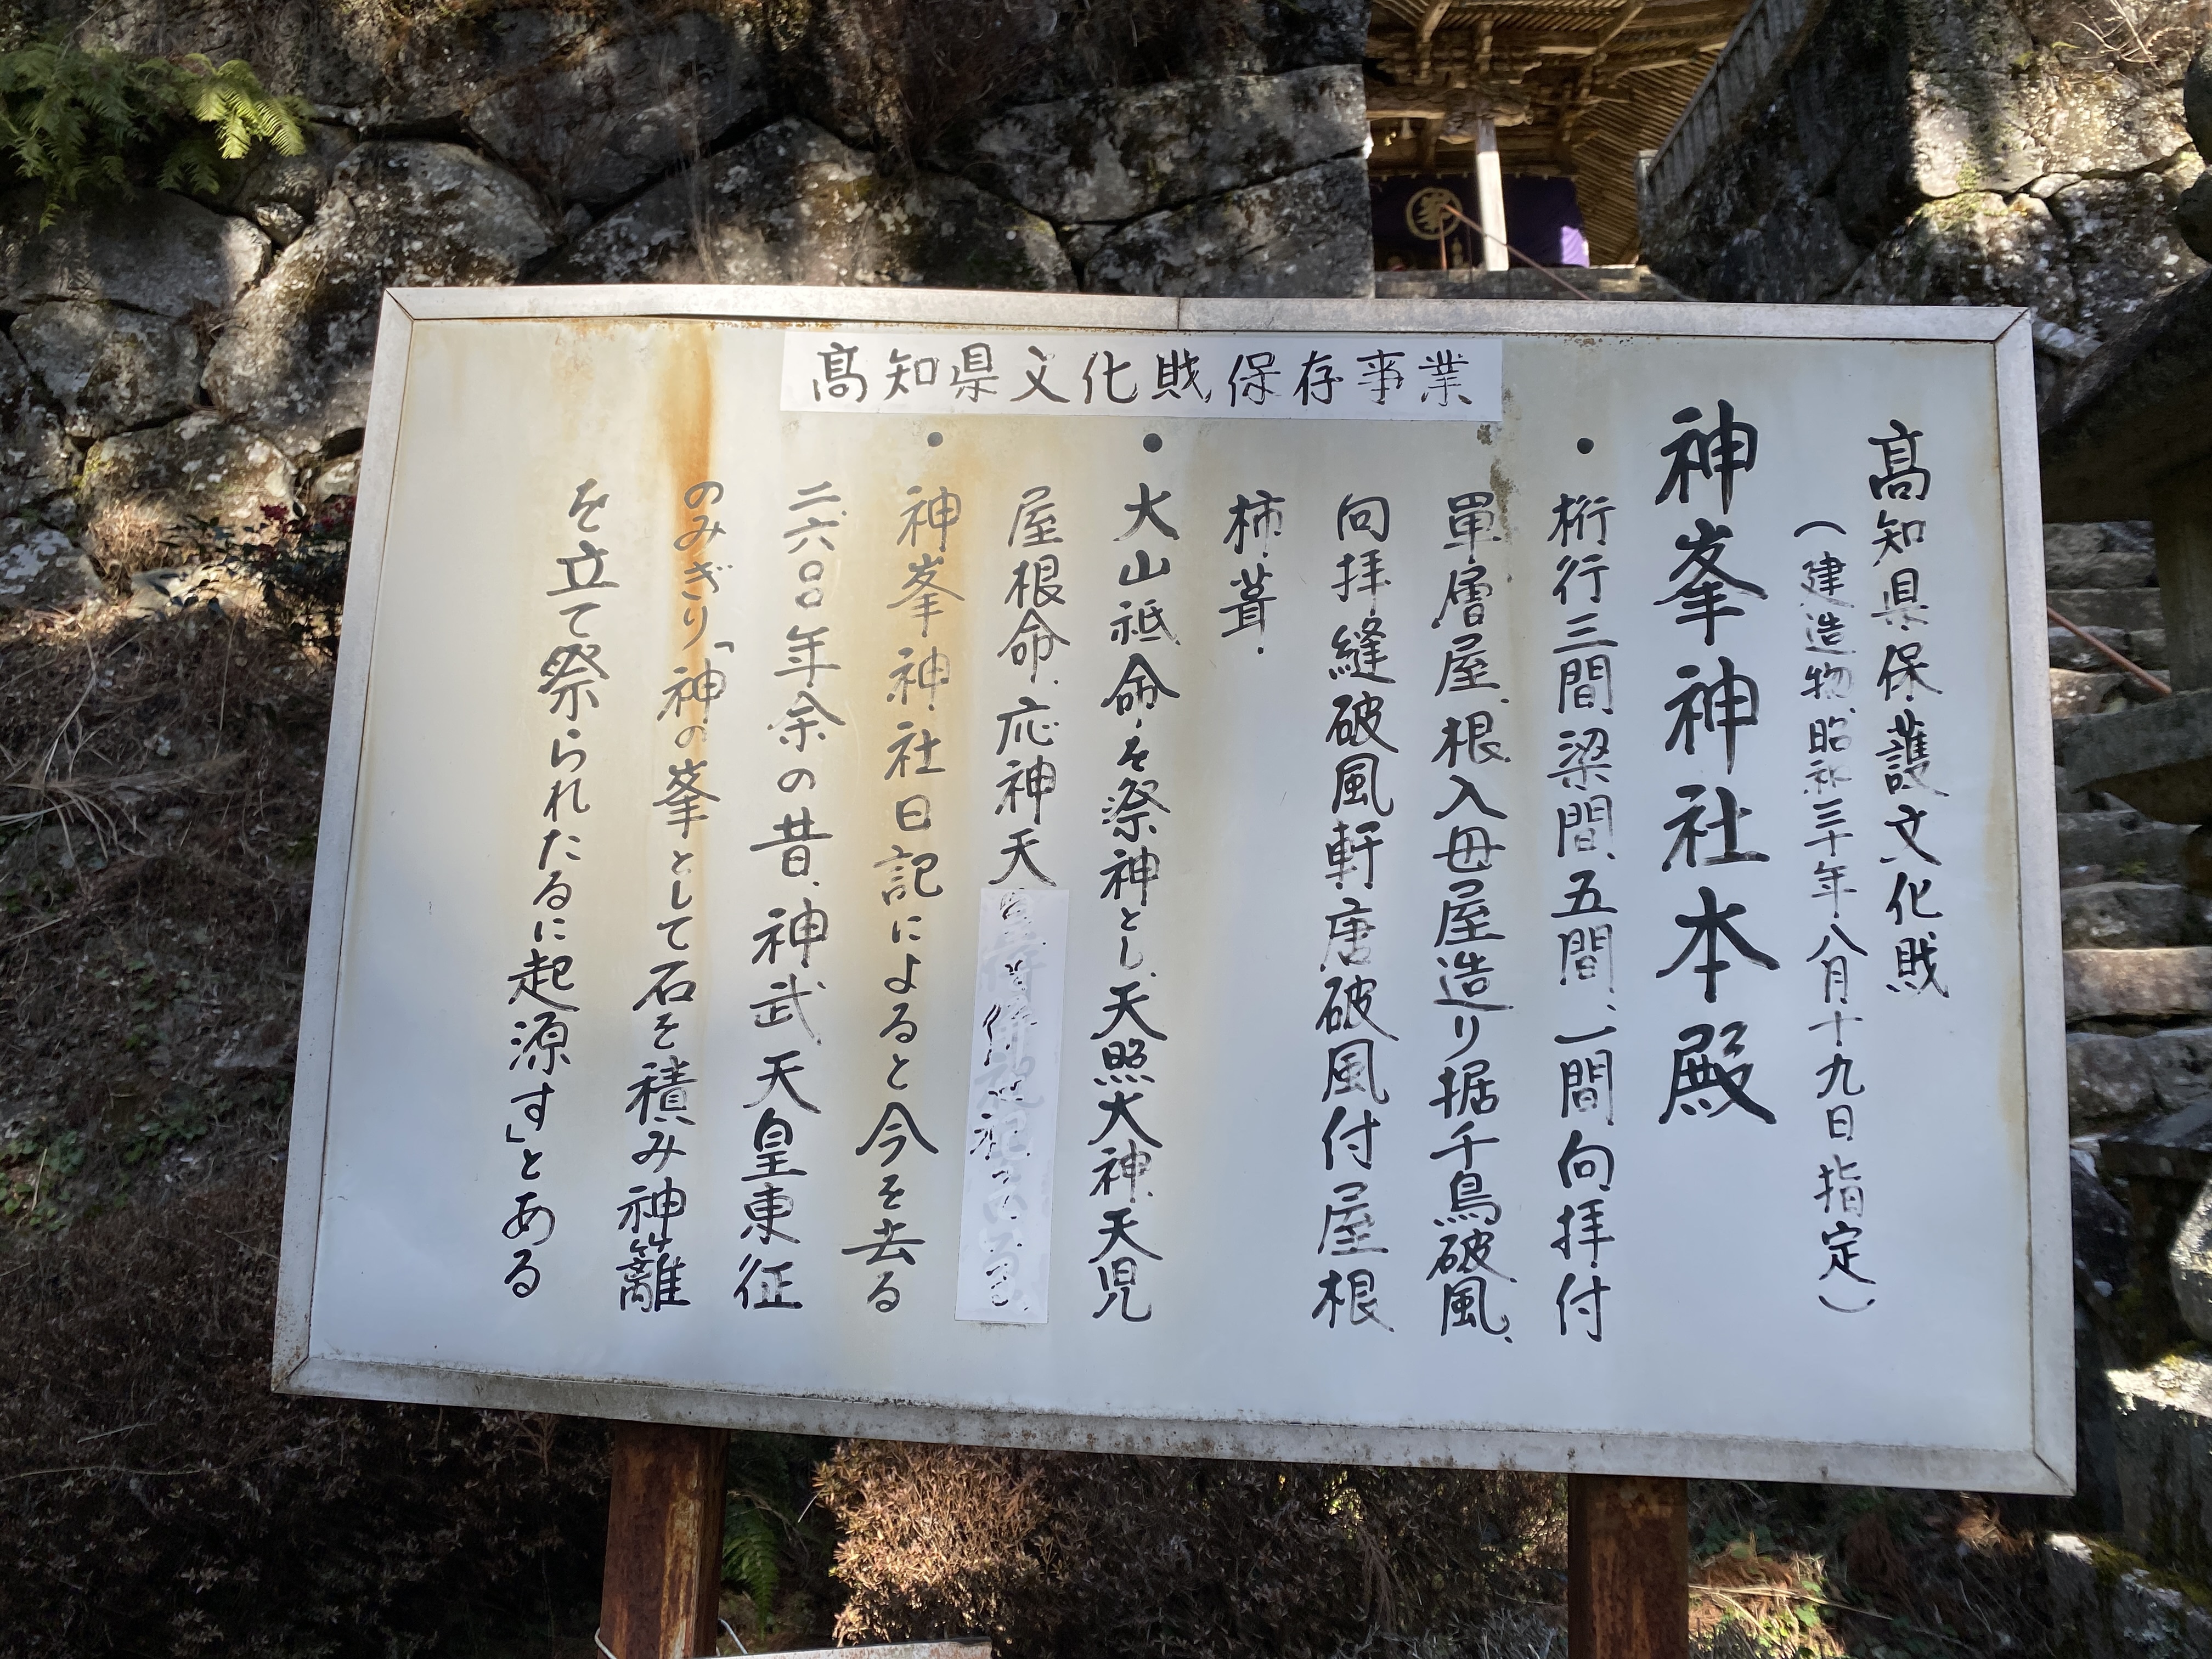 髙知県文化財保存事業
髙知県保護文化財
（建造物、昭和三十年八月十九日指定）
神峯神社本殿
・桁行三間、梁間、五間、一間向拝付
單層屋、根入母屋造り据千鳥破風、
向拝縫破風軒唐破風付屋根
柿、葺.
・大山祗命を祭神とし、天照大神、天児
屋根命、応神天
・神峯神社日記によると今を去る
二、六〇〇年余の昔、神武天皇東征
のみぎり「神の峯として石を積み神籬
を立て祭られたるに起源す」とある
峯